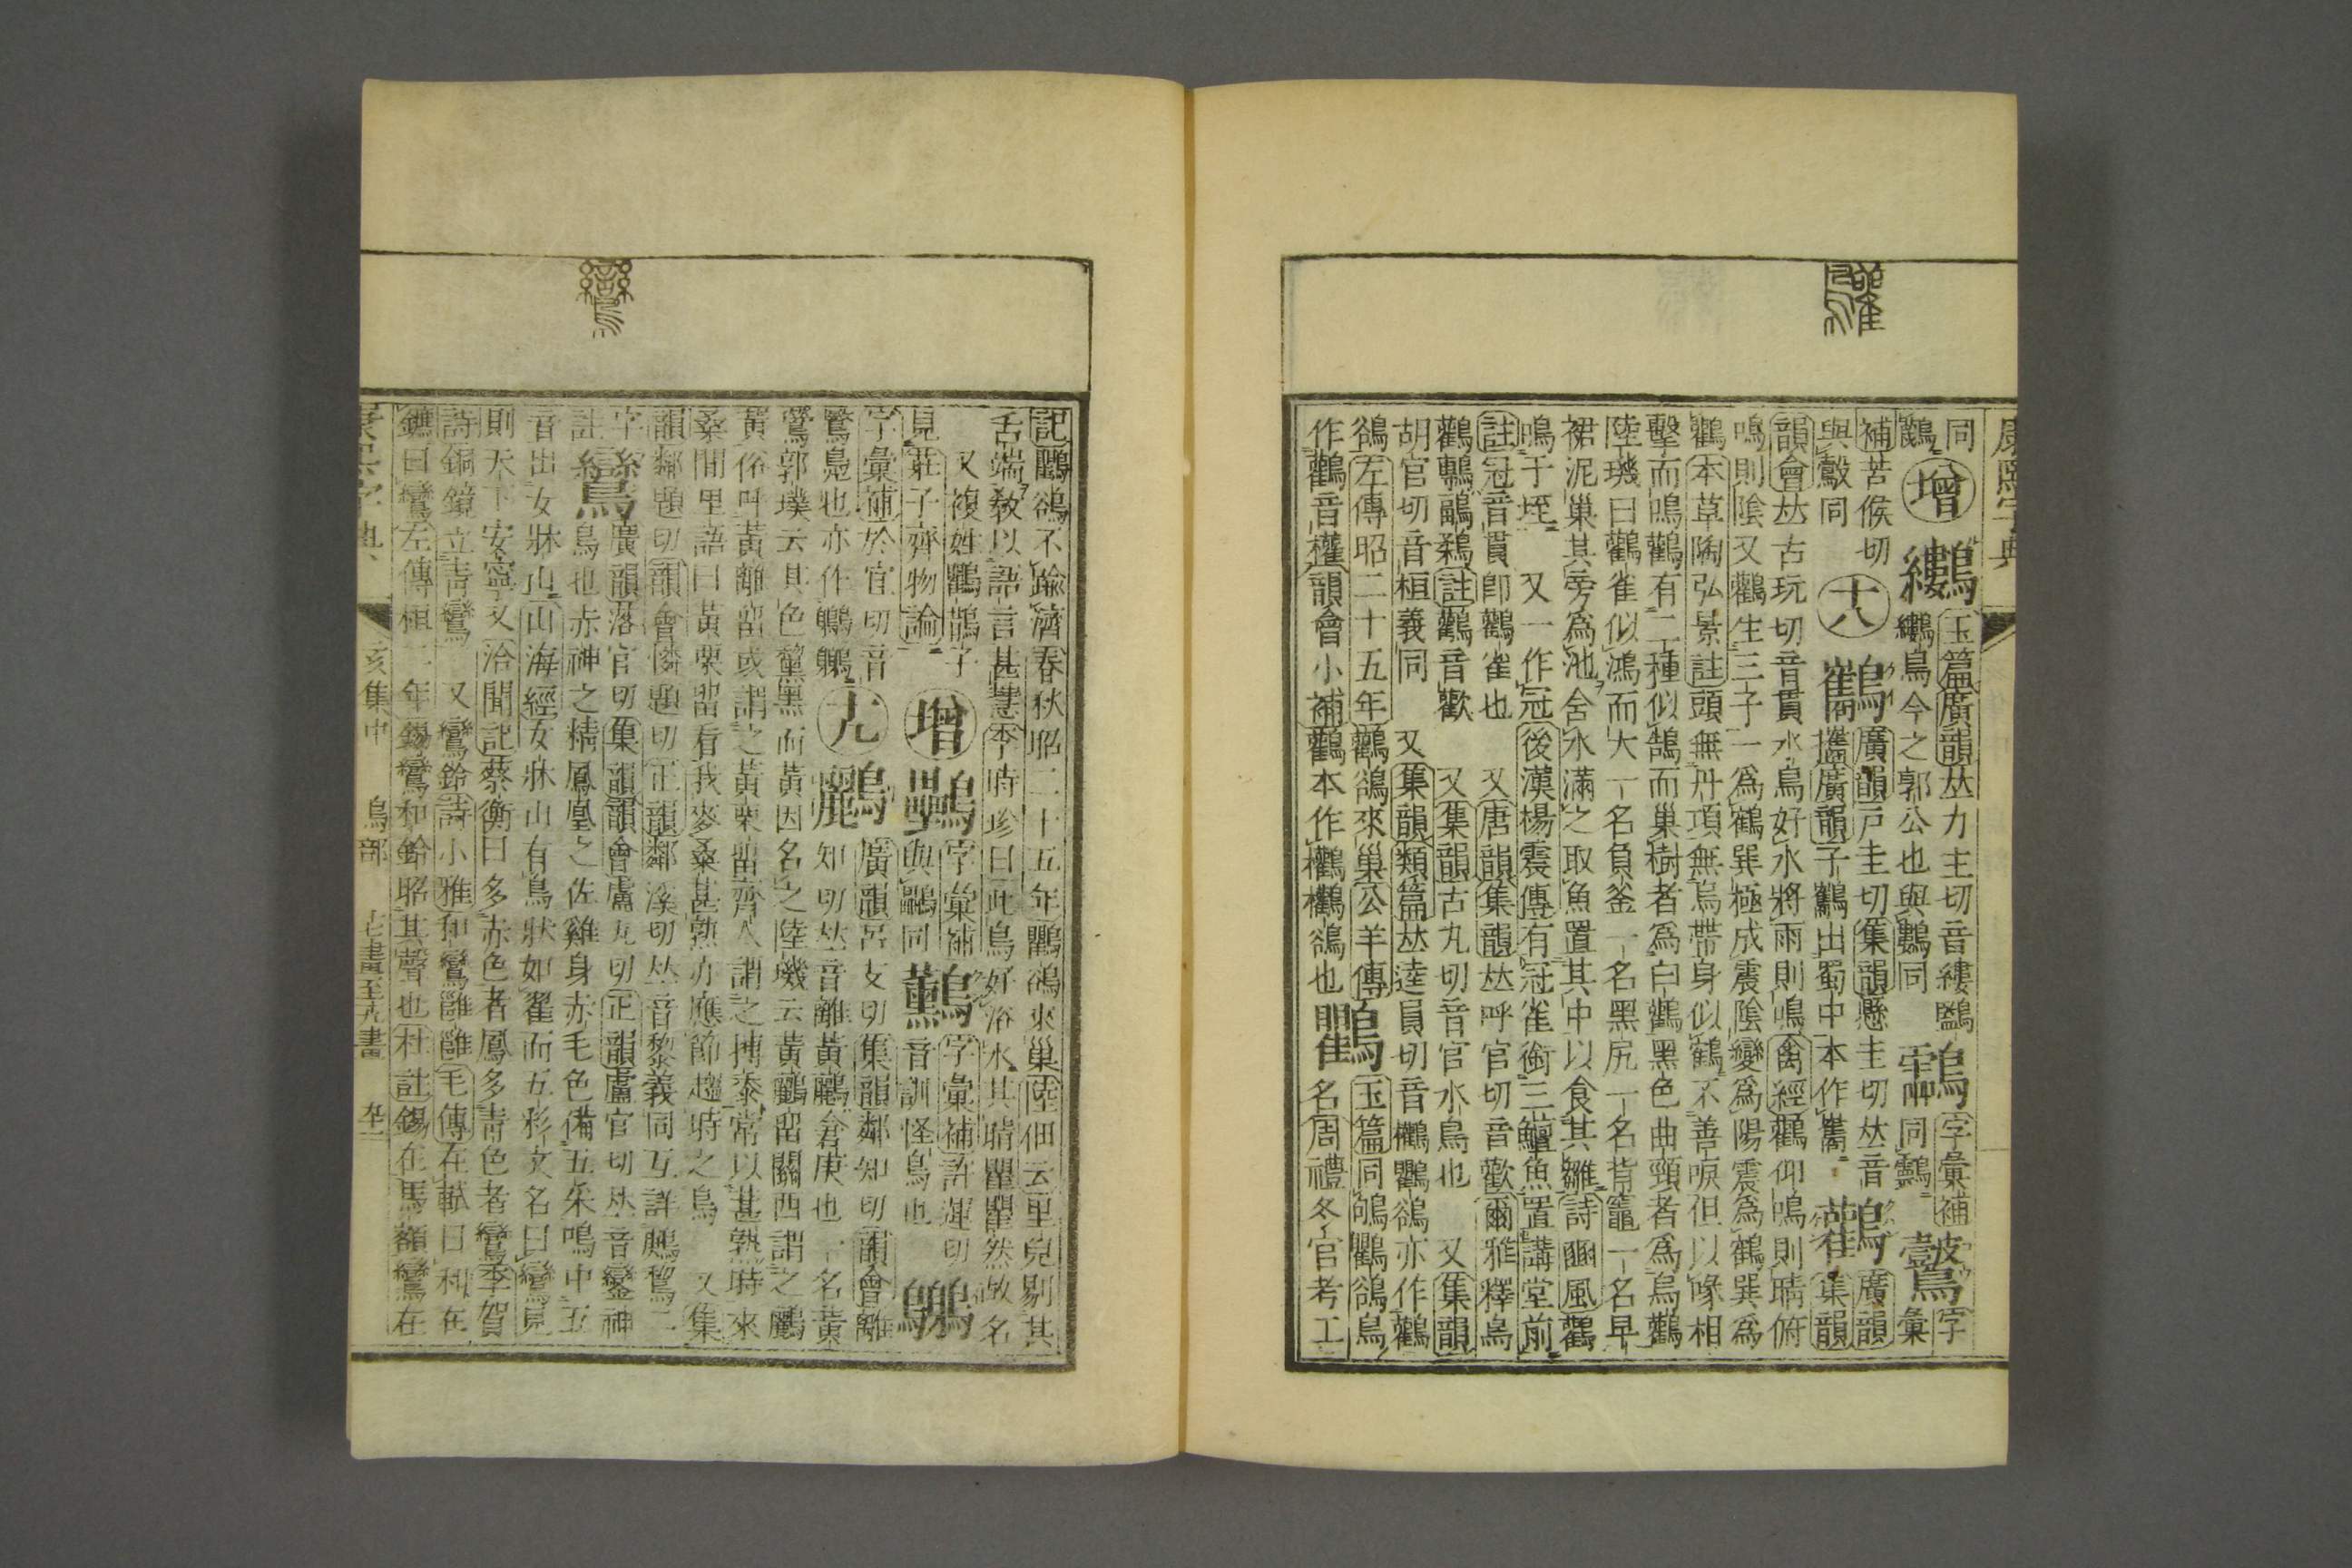 康熙字典
同
鸓 增 鷜 玉篇廣韻𠀤力主切音縷鸀
鷜鳥今之郭公也與鸚同
字彙補
同鸓
字
彙
補苦候切
與鷇同
十八 鸛 廣韻戸圭切集韻懸圭切𠀤音
攜廣韻子鸛出蜀中本作巂
鸛 廣韻
集韻
韻會𠀤古玩切音貫水鳥好水將雨則鳴禽經鸛仰鳴則晴俯
鳴則陰又鸛生三子一爲鶴巽極成震陰變爲陽震爲鶴巽爲
鸛本草陶弘景註頭無丹項無烏帶身似鶴不善唳但以喙相
擊而鳴鸛有二種似鵠而巢樹者爲白鸛黑色曲頸者爲烏鸛
陸璣曰鸛雀似鴻而大一名負釜一名黑尻一名背竈一名皁
裙泥巢其旁爲池含水滿之取魚置其中以食其雛詩豳風鸛
鳴于垤 又一作冠後漢楊震傳有冠雀銜三鱣魚置講堂前
註冠音貫卽鸛雀也 又唐韻集韻𠀤呼官切音歡爾雅釋鳥
鸛鷒鶝鶔註鸛音歡 又集韻古丸切音官水鳥也 又集韻
胡官切音桓義同 又集韻類篇𠀤逵員切音權鸜鵒亦作鸛
鵒左傳昭二十五年鸛鵒來巢公羊傳
作鸛音權韻會小補鸛本作鸛鸛鵒也
鸜 玉篇同鴝鸜鵒鳥
名周禮冬官考工
記鸜鵒不踰濟春秋昭二十五年鸜鵒來巢陸佃云里兒剔其
舌端敎以語言甚慧李時珍曰此鳥好浴水其睛瞿瞿然故名
又複姓鸜鵲子
見莊子齊物論
增 字彙補
與鸓同
字彙補許運切
音訓怪鳥也
字彙補於宜切音
鷖鳧也亦作鷖
十九 鸝 廣韻呂支切集韻鄰知切韻會離
知切𠀤音離黃鸝倉庚也一名黃
鶯郭璞云其色黧黑而黃因名之陸璣云黃鸝留關西謂之鸝
黃俗呼黃離留或謂之黃栗留齊人謂之摶黍常以葚熟時來
桑閒里語曰黃栗留看我麥黃葚熟亦應節趨時之鳥 又集
韻鄰題切韻會憐題切正韻鄰溪切𠀤音黎義同互詳鵹鴷二
字
註
鸞 廣韻落官切集韻韻會盧丸切正韻盧官切𠀤音鑾神
鳥也赤神之精鳳凰之佐雞身赤毛色備五采鳴中五
音出女牀山山海經女牀山有鳥狀如翟而五彩文名曰鸞見
則天下安寧又洽聞記蔡衡曰多赤色者鳳多靑色者鸞李賀
詩銅鏡立靑鸞 又鸞鈴詩小雅和鸞雝雝毛傳在軾曰和在
鑣曰鸞左傳桓二年鍚鸞和鈴昭其聲也杜註鍚在馬額鸞在
康熙字典 亥集中 鳥部 十七畫至十九畫